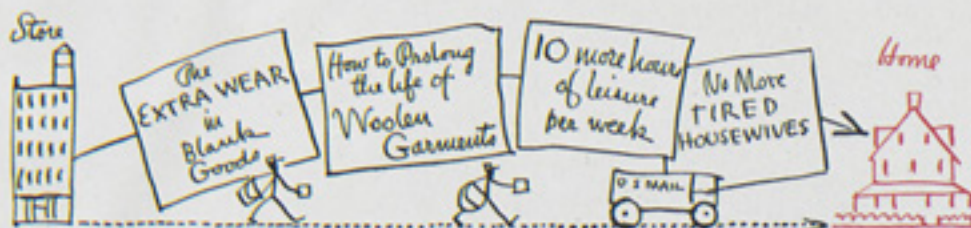 Store
The
EXTRA WEAR
in
Blank
Goods
How to Prolong
the life of
Woolen
Garments
10 more hours
of leisure
per week
No More
TIRED
HOUSEWIVES
U S MAIL
Home